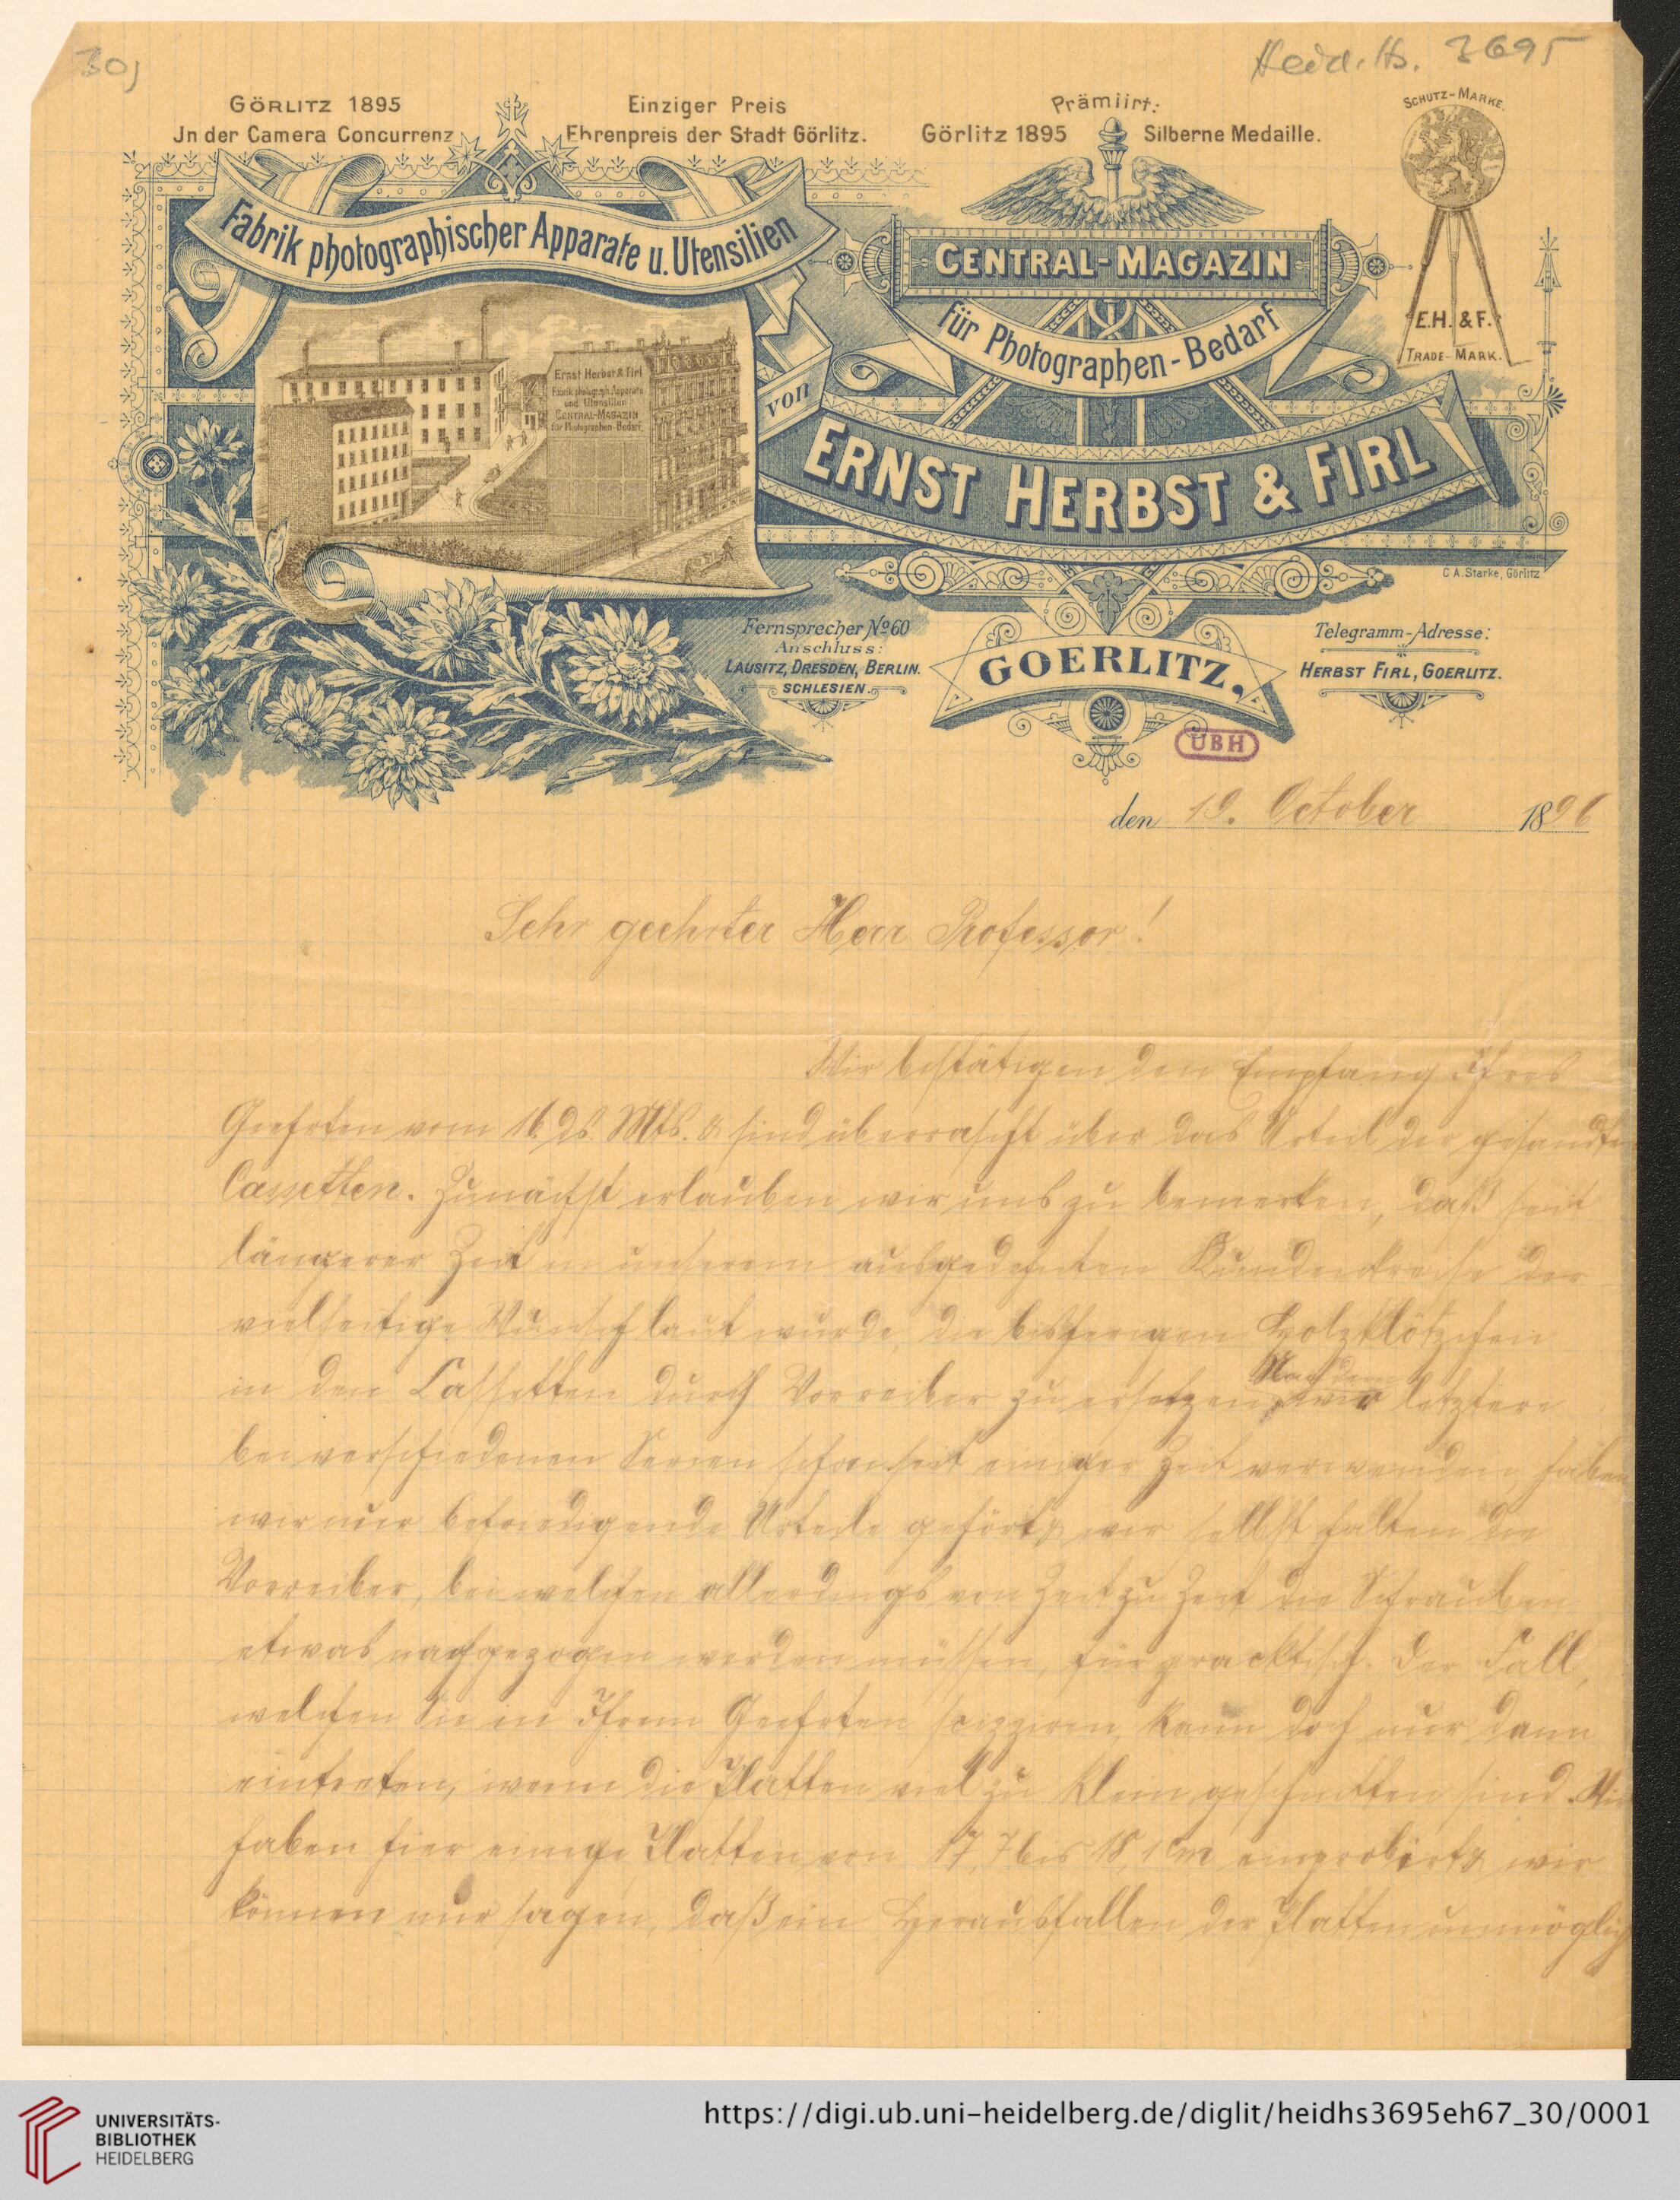 30)
Heid. Hs. 3695
GÖRLITZ 1895
Jn der Camera Concurrenz
Einziger Preis
Ehrenpreis der Stadt Görlitz.
Prämiirt:
Görlitz 1895 Silberne Medaille.
SCHUTZ-MARKE.
E.H. & F.
TRADE-MARK.
Fabrik photographischer Apparate u. Utensilien
Ernst Herbst & Firl
Fabrik photograph. Apparate
und Utensilien
CENTRAL-MAGAZIN
für Photographen-Bedarf.
CENTRAL-MAGAZIN
für Photographen-Bedarf
von
ERNST HERBST & FIRL
C.A. Starke, Görlitz
Fernsprecher No 60
Anschluss:
LAUSITZ, DRESDEN, BERLIN.
SCHLESIEN.
GOERLITZ.
Telegramm-Adresse:
HERBST FIRL, GOERLITZ.
UBH
den 19. October 1896
Sehr geehrter Herr Professor!
Wir bestätigen den Empfang Ihres
Geehrten vom 16. ds. Mts. & sind überrascht über das Urteil der gesandten
Cassetten. Zunächst erlauben wir uns zu bemerken, daß seit
längerer Zeit in unserem ausgedehnten Kundenkreise der
vielseitige Wunsch laut wurde, die bisherigen Holzklötzchen
in den Cassetten durch Vorreiber zu ersetzen. Nachdem wir letztere
bei verschiedenen Serien schon seit einiger Zeit verwenden, haben
wir nur befriedigende Urteile gehört & wir selbst halten die
Vorreiber, bei welchen allerdings von Zeit zu Zeit die Schrauben
etwas nachgezogen werden müssen, für practisch. Der Fall,
welchen Sie in Ihrem Geehrten scizziren, kann doch nur dann
eintreten, wenn die Platten viel zu klein geschnitten sind. Wir
haben hier einige Platten von 17,7 bis 18,1 cm einprobirt & wir
können nur sagen, daß ein Herausfallen der Platten unmöglich
UNIVERSITÄTS-
BIBLIOTHEK
HEIDELBERG
https://digi.ub.uni-heidelberg.de/diglit/heidhs3695eh67_30/0001